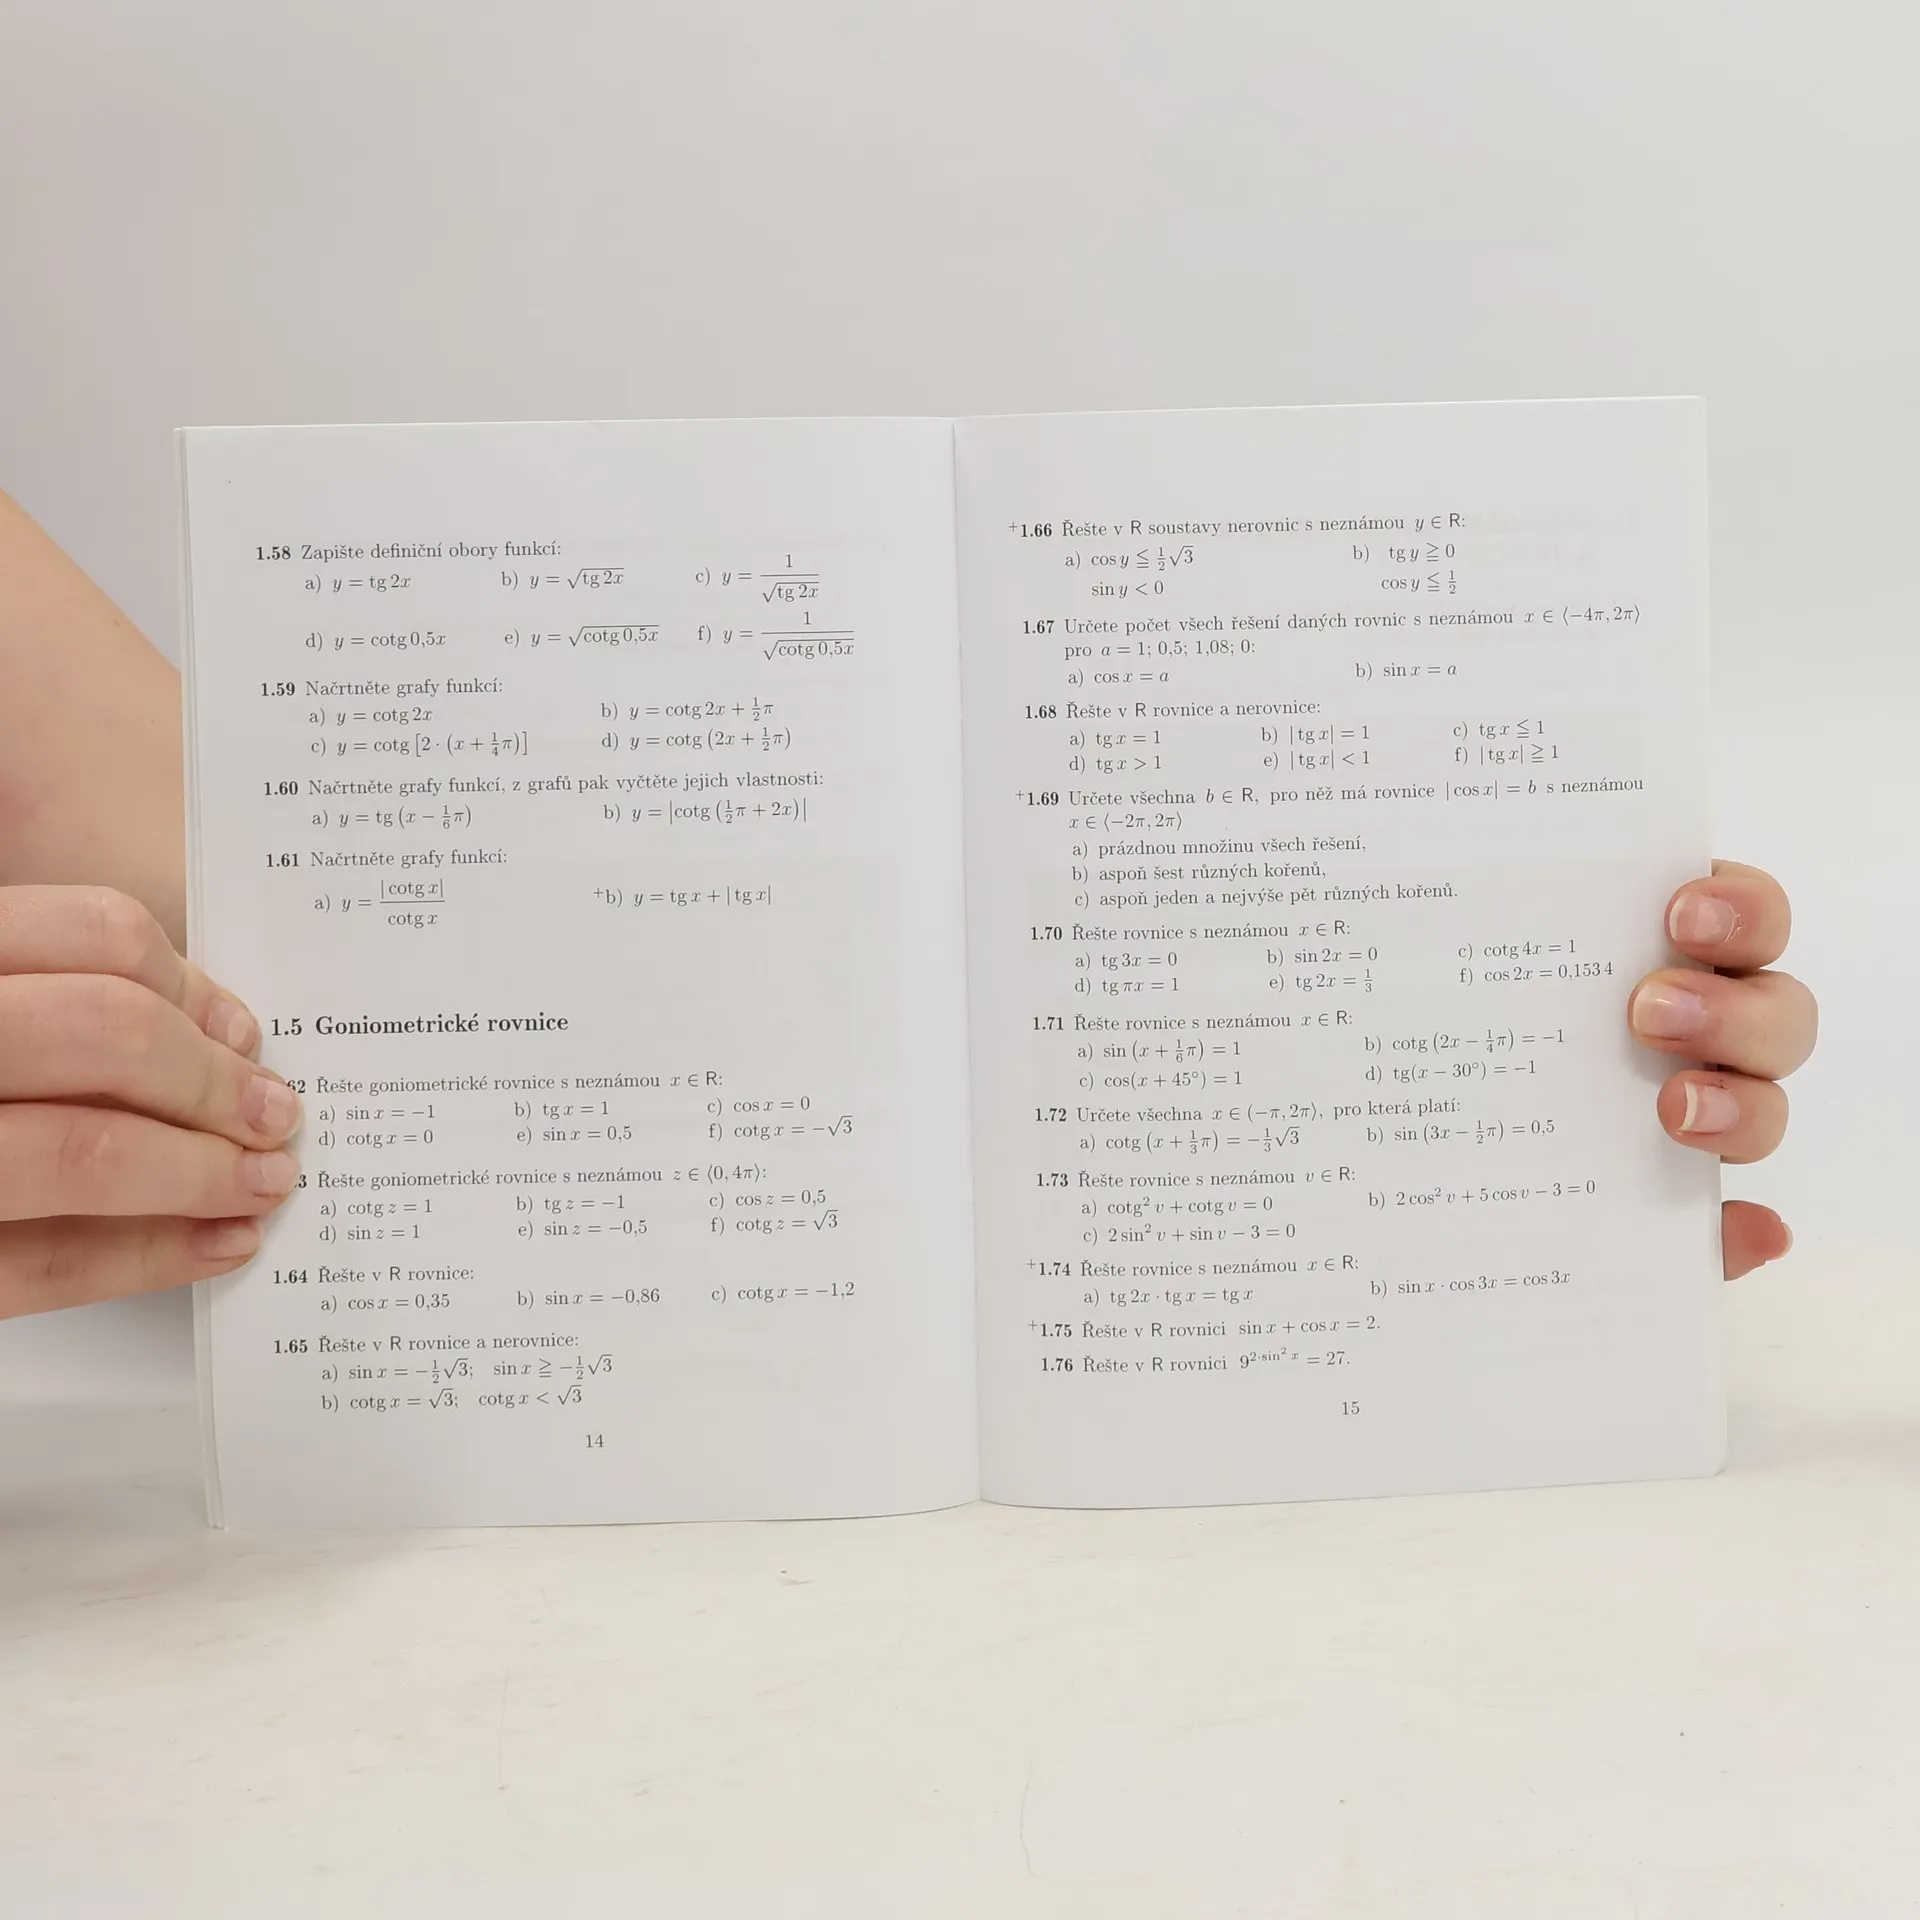 1.58 Zapište definiční obory funkcí:
a) y = tg 2x b) y = √(tg 2x) c) y = 1/√(tg 2x)
d) y = cotg 0,5x e) y = √(cotg 0,5x) f) y = 1/√(cotg 0,5x)
1.59 Načrtněte grafy funkcí:
a) y = cotg 2x b) y = cotg 2x + 1/2 π
c) y = cotg [2 · (x + 1/4 π)] d) y = cotg (2x + 1/2 π)
1.60 Načrtněte grafy funkcí, z grafů pak vyčtěte jejich vlastnosti:
a) y = tg (x − 1/6 π) b) y = |cotg (1/2 π + 2x)|
1.61 Načrtněte grafy funkcí:
a) y = |cotg x|/cotg x +b) y = tg x + |tg x|
1.5 Goniometrické rovnice
62 Řešte goniometrické rovnice s neznámou x ∈ R:
a) sin x = −1 b) tg x = 1 c) cos x = 0
d) cotg x = 0 e) sin x = 0,5 f) cotg x = −√3
3 Řešte goniometrické rovnice s neznámou z ∈ ⟨0, 4π⟩:
a) cotg z = 1 b) tg z = −1 c) cos z = 0,5
d) sin z = 1 e) sin z = −0,5 f) cotg z = √3
1.64 Řešte v R rovnice:
a) cos x = 0,35 b) sin x = −0,86 c) cotg x = −1,2
1.65 Řešte v R rovnice a nerovnice:
a) sin x = −1/2 √3; sin x ≧ −1/2 √3
b) cotg x = √3; cotg x < √3
14
+1.66 Řešte v R soustavy nerovnic s neznámou y ∈ R:
a) cos y ≦ 1/2 √3 b) tg y ≧ 0
sin y < 0 cos y ≦ 1/2
1.67 Určete počet všech řešení daných rovnic s neznámou x ∈ ⟨−4π, 2π⟩
pro a = 1; 0,5; 1,08; 0:
a) cos x = a b) sin x = a
1.68 Řešte v R rovnice a nerovnice:
a) tg x = 1 b) |tg x| = 1 c) tg x ≦ 1
d) tg x > 1 e) |tg x| < 1 f) |tg x| ≧ 1
+1.69 Určete všechna b ∈ R, pro něž má rovnice |cos x| = b s neznámou
x ∈ ⟨−2π, 2π⟩
a) prázdnou množinu všech řešení,
b) aspoň šest různých kořenů,
c) aspoň jeden a nejvýše pět různých kořenů.
1.70 Řešte rovnice s neznámou x ∈ R:
a) tg 3x = 0 b) sin 2x = 0 c) cotg 4x = 1
d) tg πx = 1 e) tg 2x = 1/3 f) cos 2x = 0,153 4
1.71 Řešte rovnice s neznámou x ∈ R:
a) sin (x + 1/6 π) = 1 b) cotg (2x − 1/4 π) = −1
c) cos(x + 45°) = 1 d) tg(x − 30°) = −1
1.72 Určete všechna x ∈ (−π, 2π⟩, pro která platí:
a) cotg (x + 1/3 π) = −1/3 √3 b) sin (3x − 1/2 π) = 0,5
1.73 Řešte rovnice s neznámou v ∈ R:
a) cotg² v + cotg v = 0 b) 2 cos² v + 5 cos v − 3 = 0
c) 2 sin² v + sin v − 3 = 0
+1.74 Řešte rovnice s neznámou x ∈ R:
a) tg 2x · tg x = tg x b) sin x · cos 3x = cos 3x
+1.75 Řešte v R rovnici sin x + cos x = 2.
1.76 Řešte v R rovnici 9^(2·sin² x) = 27.
15